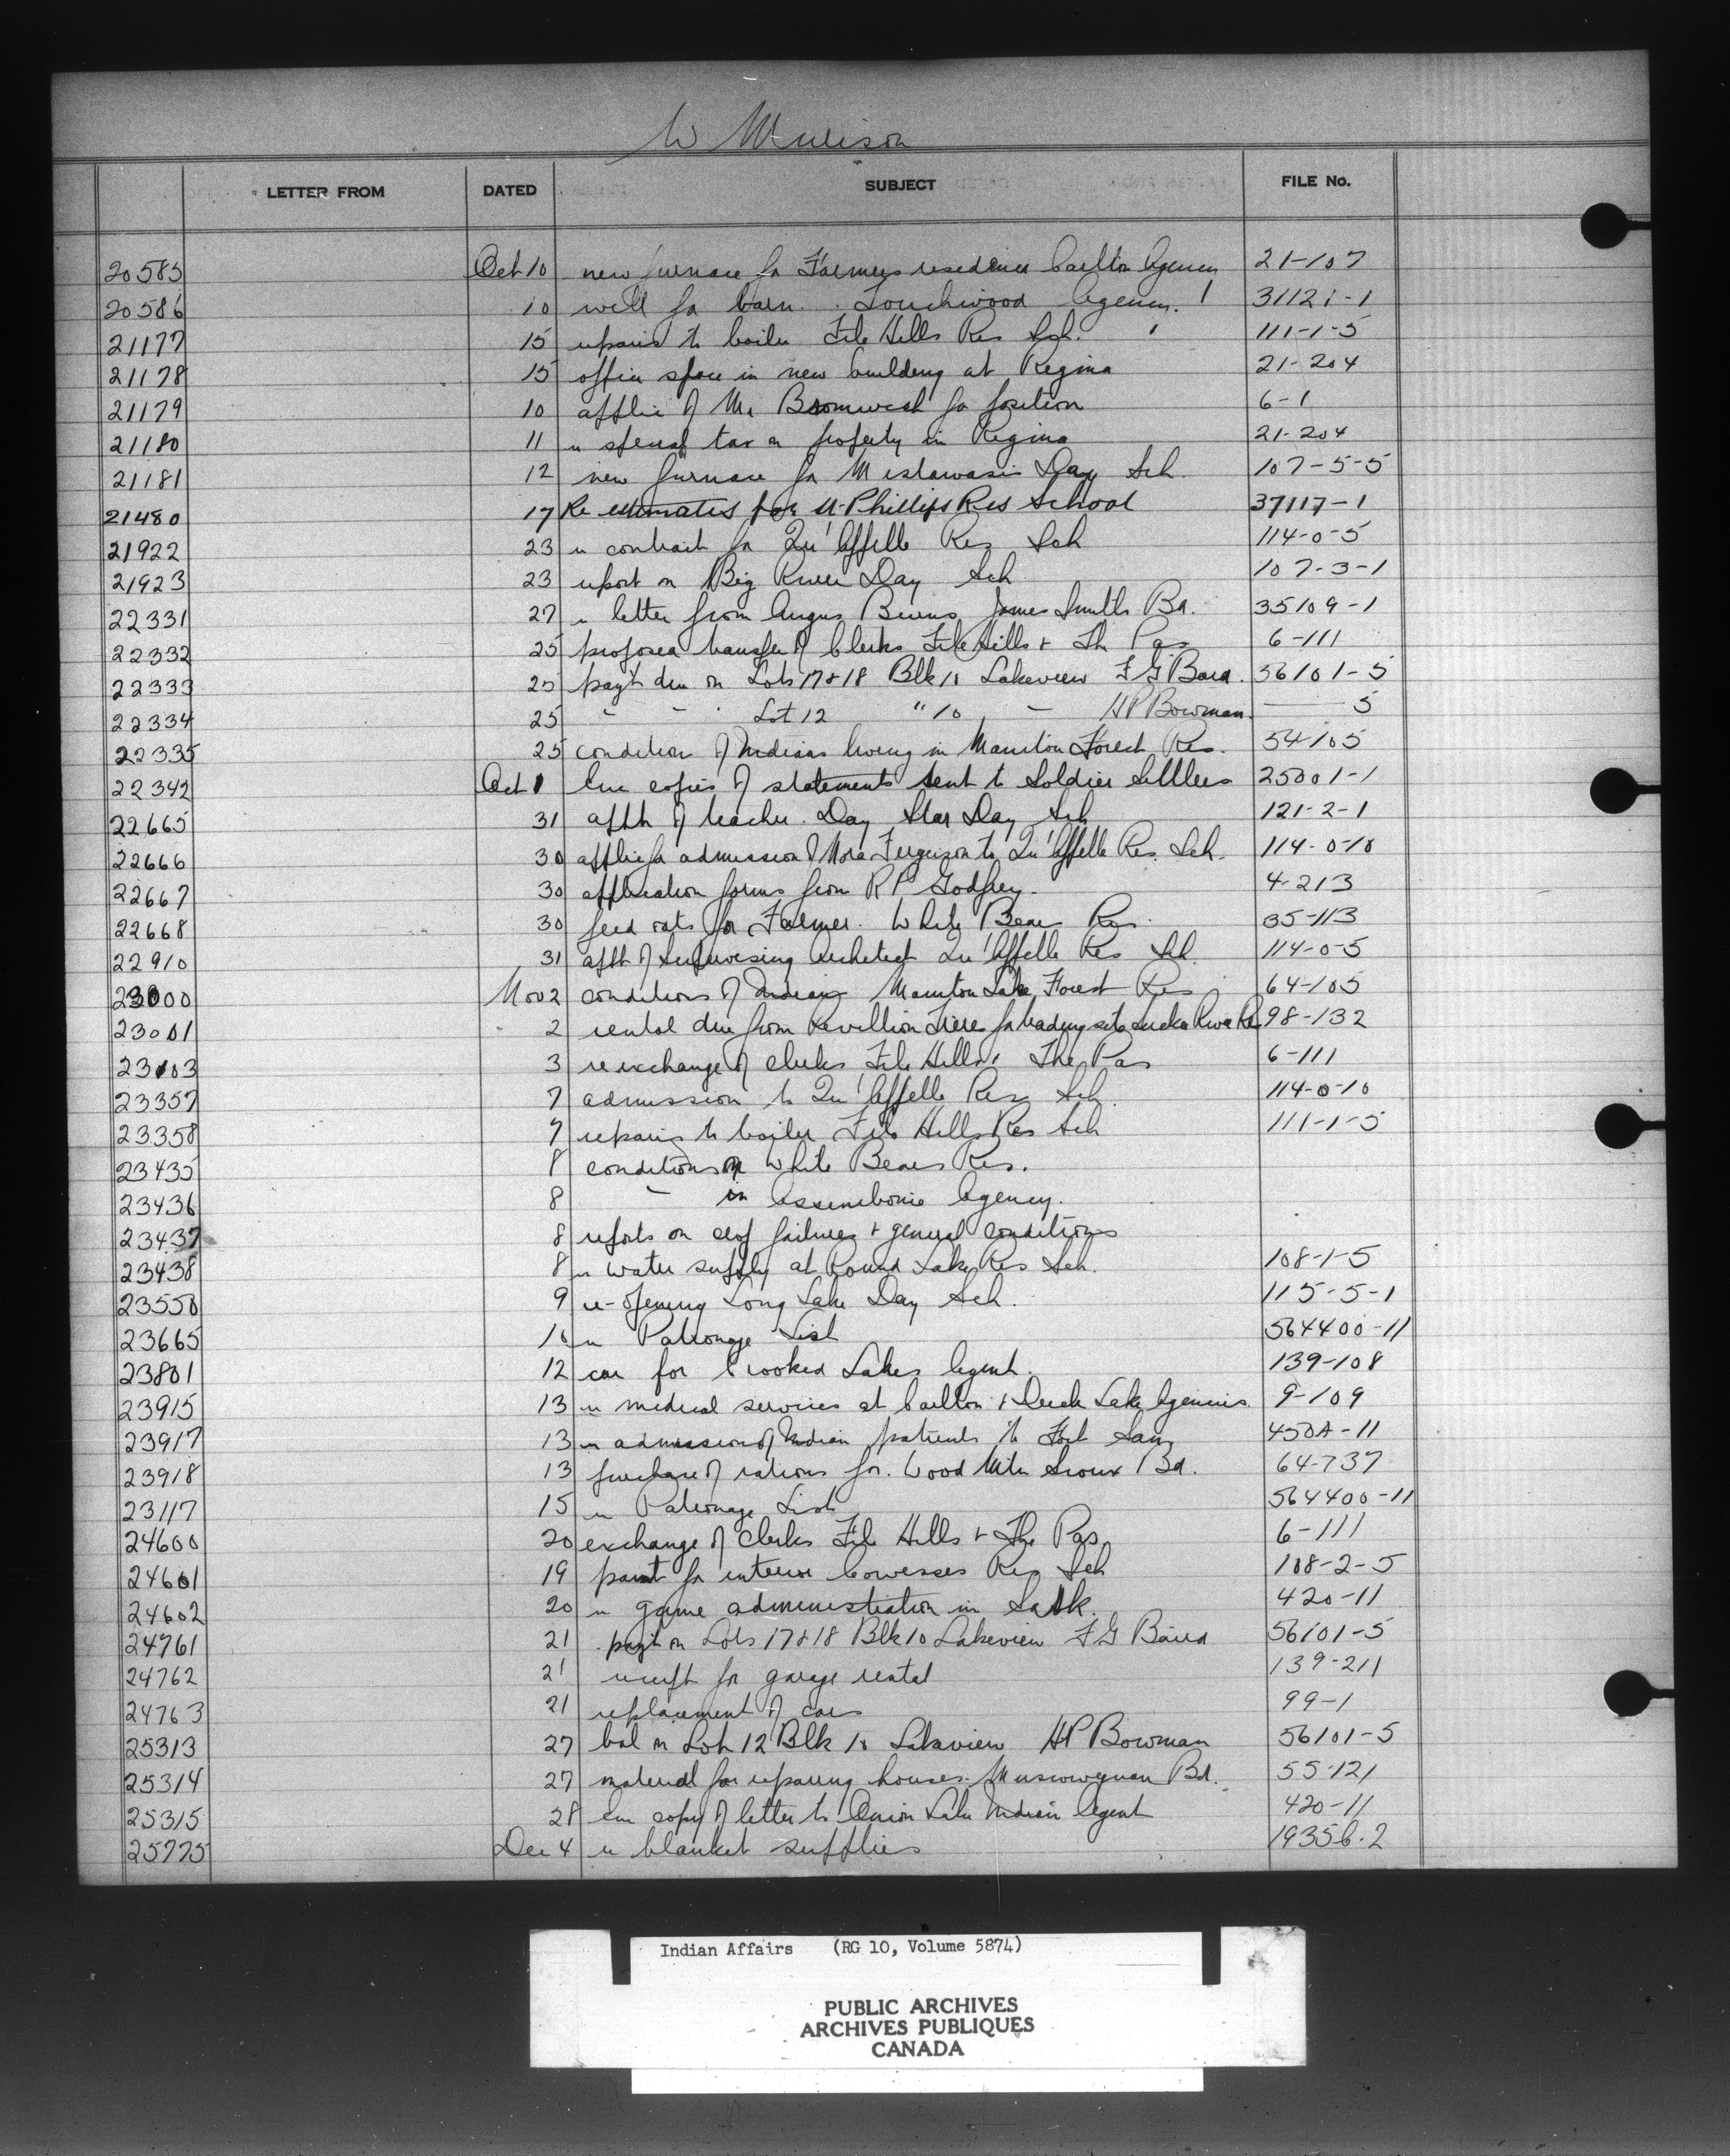 W Murison
LETTER FROM DATED SUBJECT FILE No.
20585 Oct 10 new furnace for Farmers residence Carlton Agency 21-107
20586 10 well for barn Touchwood Agency 31121-1
21177 15 repairs to boiler File Hills Res Sch. 111-1-5
21178 15 office space in new building at Regina 21-204
21179 10 applic of Mr Bromwich for position 6-1
21180 11 re special tax on property in Regina 21-204
21181 12 new furnace for Mistawasis Day Sch. 107-5-5
21480 17 Re estimates for St Phillips Res School 37117-1
21922 23 re contract for Qu'Appelle Res Sch 114-0-5
21923 23 report on Big River Day Sch 107-3-1
22331 27 re letter from Angus Burns James Smith Bd. 35109-1
22332 25 proposed transfer of Clerks File Hills & The Pas 6-111
22333 25 pay't due on Lots 17 & 18 Blk 10 Lakeview F G Baird. 56101-5
22334 25 - - - Lot 12 " 10 - H P Bowman. 5
22335 25 condition of Indians living in Moose Forest Res. 54105
22342 Oct 1 Enc copies of statements sent to Soldier Settlers 25001-1
22665 31 appt of teacher. Day Star Day Sch 121-2-1
22666 30 applic for admission of Nora Ferguson to Qu'Appelle Res. Sch. 114-0-10
22667 30 application forms from R P Godfrey. 4-213
22668 30 feed oats for Farmer. White Bear Res. 35-113
22910 31 appt of Supervising Architect Qu'Appelle Res Sch. 114-0-5
23000 Nov 2 conditions of Indians Lake Forest Res 64-105
23001 2 rental due from Revillion Freres for trading site Sucker River Res 98-132
23103 3 re exchange of clerks File Hills & The Pas 6-111
23357 7 admission to Qu'Appelle Res Sch. 114-0-10
23358 7 repairs to boiler File Hills Res Sch 111-1-5
23435 8 conditions on White Bear Res.
23436 8 - in Assiniboine Agency.
23437 8 reports on crop failures & general conditions
23438 8 re water supply at Round Lake Res Sch. 108-1-5
23550 9 re-opening Long Lake Day Sch. 115-5-1
23665 10 re Patronage List 564400-11
23801 12 car for Crooked Lakes Agent. 139-108
23915 13 re medical services at Carlton & Duck Lake Agencies. 9-109
23917 13 re admission of Indian patients to Fort San 450A-11
23918 13 purchase of rations for Wood Mtn Sioux Bd. 64-737
23117 15 re Patronage List 564400-11
24600 20 exchange of clerks File Hills & The Pas 6-111
24601 19 paint for interior Cowesses Res Sch 108-2-5
24602 20 re game administration in Sask. 420-11
24761 21 pay't on Lots 17 & 18 Blk 10 Lakeview F G Baird 56101-5
24762 21 receipt for garage rental 139-211
24763 21 replacement of cars 99-1
25313 27 bal on Lot 12 Blk 10 Lakeview H P Bowman 56101-5
25314 27 material for repairing houses. Muscowequan Bd. 55-121
25315 28 Enc copy of letter to Onion Lake Indian Agent 420-11
25775 Dec 4 re blanket supplies 19356-2
Indian Affairs (RG 10, Volume 5874)
PUBLIC ARCHIVES
ARCHIVES PUBLIQUES
CANADA